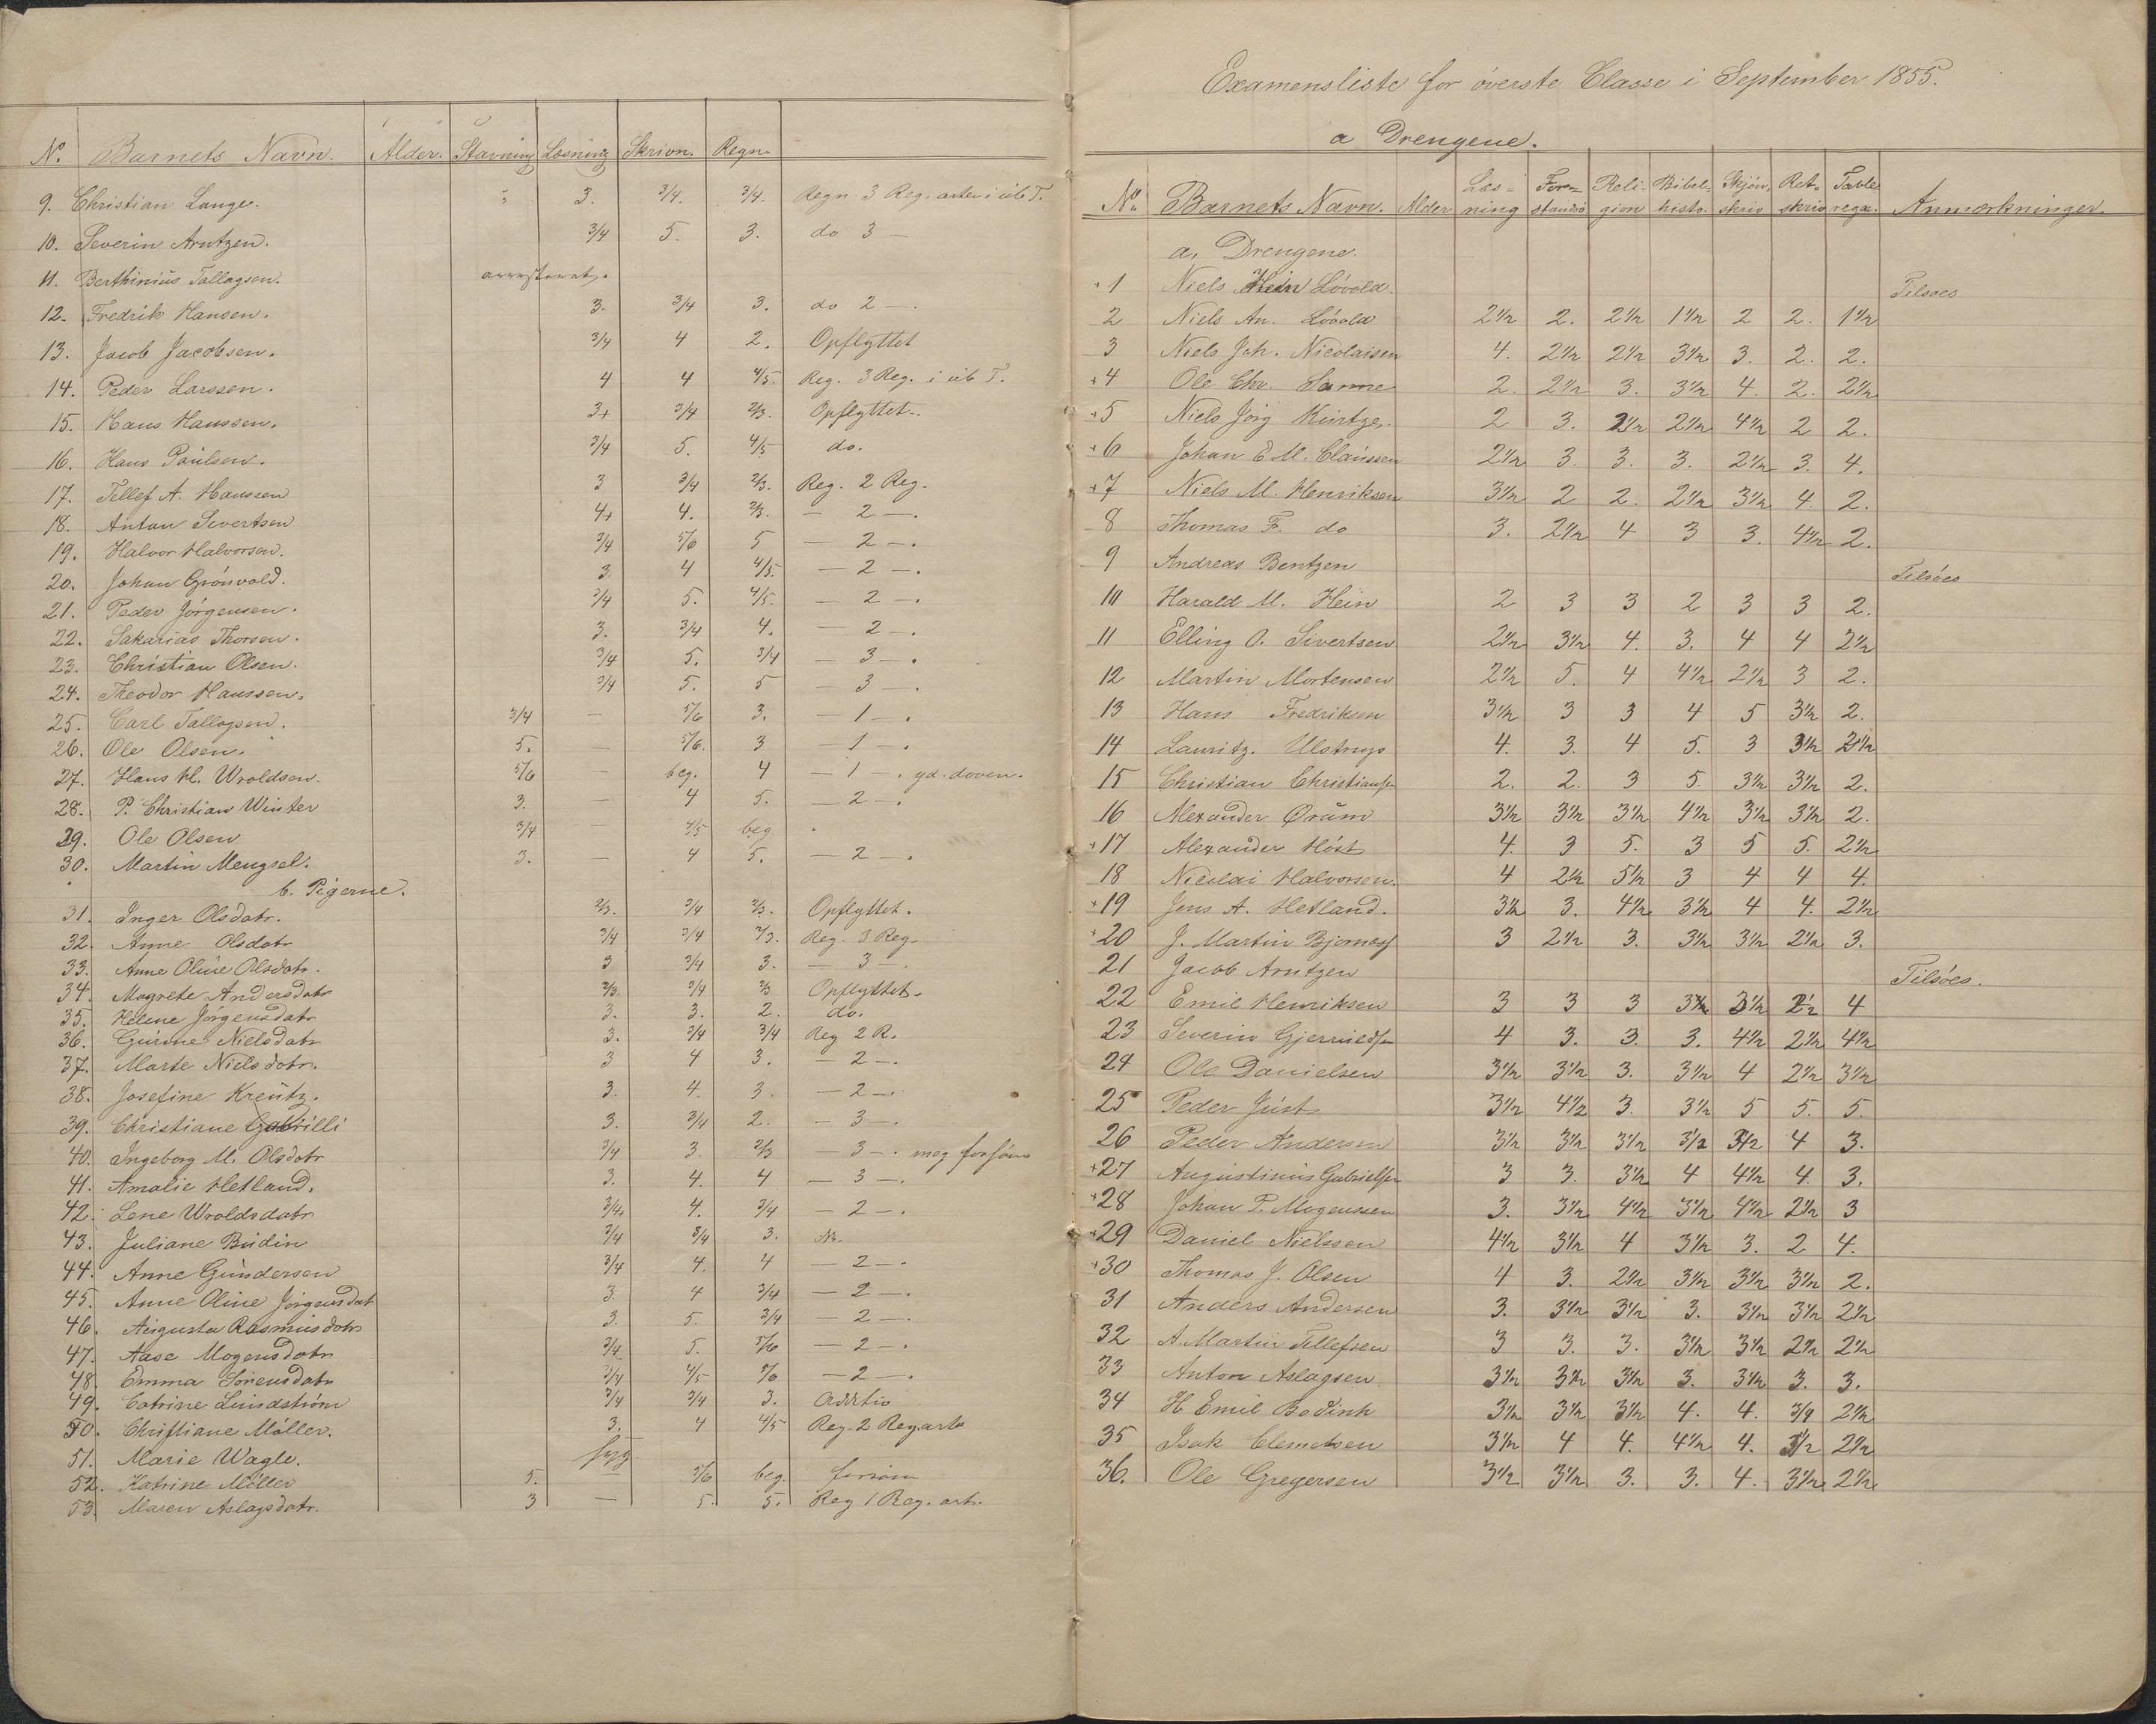 No. Barnets Navn. Alder. Stavning Læsning Skrivn. Regn.
9. Christian Lange. " 3. 3/4. 3/4. Regn. 3 Reg. arter i ub T.
10. Severin Arntzen. 3/4 5. 3. do 3 —
11. Berthinius Tallagsen.
12. Fredrik Hansen. 3. 3/4 3. do 2 —.
13. Jacob Jacobsen. 3/4 4 2. Opflyttet
14. Peder Larssen. 4 4 4/5. Reg. 3 Reg. i ub T.
15. Hans Hanssen. 3+ 3/4 2/3. Opflyttet.
16. Hans Poulsen. 3/4 5. 4/5 do.
17. Tellef A. Hanssen 3 3/4 2/3. Reg. 2 Reg.
18. Anton Sivertsen 4+ 4. 2/3. — 2 —.
19. Halvor Halvorsen. 3/4 5/6 5 — 2 —.
20. Johan Grönvold. 3 4 4/5. — 2 —.
21. Peder Jörgensen. 3/4 5. 4/5. — 2 —.
22. Sakarias Thorsen. 3. 3/4 4. — 2 —.
23. Christian Olsen. 3/4 5. 3/4 — 3 —.
24. Theodor Hanssen. 3/4 5. 5 — 3 —.
25. Carl Tallagsen. 3/4 — 5/6 3. — 1 —.
26. Ole Olsen. 5. — 5/6. 3 — 1 —.
27. Hans H. Wroldsen. 5/6 — beg. 4 — 1 —. yd. doven.
28. P. Christian Winter 3. — 4 5. — 2 —.
29. Ole Olsen 3/4 — 4/5 beg.
30. Martin Mengsel. 3. — 4 5. — 2 —.
b. Pigerne.
31. Inger Olsdatr. 2/3. 3/4 2/3. Opflyttet.
32. Anne Olsdatr 3/4 3/4 2/3. Reg. 3 Reg.
33. Anne Oline Olsdatr. 3 3/4 3. — 3 —.
34. Magrete Andersdatr 2/3. 3/4 2/3 Opflyttet.
35. Helene Jörgensdatr 3. 3. 2. do.
36. Gurine Nielsdatr 3. 3/4 3/4 Reg 2 R.
37. Marte Nielsdatr. 3 4 3. — 2 —.
38. Josefine Kreutz. 3. 4. 3. — 2 —.
39. Christiane 3. 3/4 2. — 3 —.
40. Ingeborg M. Olsdatr 3/4 3. 2/3 — 3 —. meg forsöm
41. Amalie Hetland. 3. 4. 4 — 3 —.
42. Lene Wroldsdatr 3/4+ 4. 3/4 — 2 —.
43. Juliane Budin 3/4 3/4 3.
44. Anne Gundersen 3/4 4. 4 — 2 —.
45. Anne Oline Jörgensdat 3. 4 3/4 — 2 —.
46. Augusta Rasmusdatr 3. 5. 3/4 — 2 —.
47. Aase Mogensdatr 3/4 5. 5/6 — 2 —.
48. Emma Sörensdatr 3/4 4/5 5/6 — 2 —.
49. Catrine Lundström 3/4 3/4 3. Additio
50. Christiane Möller. 3. 4 4/5 Reg. 2 Reg.arte
51. Marie Wagle. syg
52. Katrine Möller 5. 5/6 beg. forsöm
53. Maren Aslagsdatr. 3 — 5. 5. Reg 1 Reg. art.
Examensliste for överste Classe i September 1855.
a Drengene.
No. Barnets Navn. Alder Læs-ning Forstand Reli-gion Bibel-histo. Skjön-skriv Ret-skriv Tavleregn. Anmærkninger.
a, Drengene.
+1 Niels Hein Lövold. Tilsöes
2 Niels An. Lövold 2 1/2 2. 2 1/2 1 1/2 2 2. 1 1/2
3 Niels Joh. Nicolaisen 4. 2 1/2 2 1/2 3 1/2 3. 2. 2.
+4 Ole Chr. Lanne 2. 2 1/2 3. 3 1/2 4. 2. 2 1/2
+5 Niels Jörg Kurtze. 2 3. 2 1/2 2 1/2 4 1/2 2 2.
+6 Johan E M. Claussen 2 1/2 3. 3. 3. 2 1/2 3. 4.
+7 Niels M. Henriksen 3 1/2 2 2. 2 1/2 3 1/2 4. 2.
8 Thomas F. do 3. 2 1/2 4 3 3. 4 1/2 2.
9 Andreas Bentzen Tilsöes
10 Harald M. Hein 2 3 3 2 3 3 2.
11 Elling O. Sivertsen 2 1/2 3 1/2 4. 3. 4 4 2 1/2
12 Martin Mortensen 2 1/2 5. 4 4 1/2 2 1/2 3 2.
13 Hans Fredriksen 3 1/2 3 3 4 5 3 1/2 2.
14 Lauritz. Ulstrup 4. 3. 4 5. 3 3 1/2 2 1/2
15 Christian Christiansen 2. 2. 3 5. 3 1/2 3 1/2 2.
16 Alexander Örum 3 1/2 3 1/2 3 1/2 4 1/2 3 1/2 3 1/2 2.
+17 Alexander Höst 4. 3 5. 3 5 5. 2 1/2
18 Nicolai Halvorsen. 4 2 1/2 5 1/2 3 4 4 4.
+19 Jens A. Hetland. 3 1/2 3. 4 1/2 3 1/2 4 4. 2 1/2
+20 J. Martin 3 2 1/2 3. 3 1/2 3 1/2 2 1/2 3.
21 Jacob Arntzen Tilsöes.
22 Emil Henriksen 3 3 3 3 1/2 3 1/2 2 1/2 4
23 Severin 4 3. 3. 3. 4 1/2 2 1/2 4 1/2
24 Ole Danielsen 3 1/2 3 1/2 3. 3 1/2 4 2 1/2 3 1/2
25 Peder Just 3 1/2 4 1/2 3. 3 1/2 5 5. 5.
26 Peder Andersen 3 1/2 3 1/2 3 1/2 3 1/2 3 1/2 4 3.
+27 Augustinus Gabrielsen 3 3. 3 1/2 4 4 1/2 4. 3.
+28 Johan P. Mogenssen 3. 3 1/2 4 1/2 3 1/2 4 1/2 2 1/2 3
+29 Daniel Nielssen 4 1/2 3 1/2 4 3 1/2 3. 2 4.
+30 Thomas J. Olsen 4 3. 2 1/2 3 1/2 3 1/2 3 1/2 2.
31 Anders Andersen 3. 3 1/2 3 1/2 3. 3 1/2 3 1/2 2 1/2
32 A. Martin Tellefsen 3 3. 3. 3 1/2 3 1/2 2 1/2 2 1/2
33 Anton Aslagsen 3 1/2 3 1/2 3 1/2 3. 3 1/2 3. 3.
34 H Emil 3 1/2 3 1/2 3 1/2 4. 4. 3/4 2 1/2
35 Isak Clemetsen 3 1/2 4 4. 4 1/2 4. 3 1/2 2 1/2
36. Ole Gregersen 3 1/2 3 1/2 3. 3. 4. 3 1/2 2 1/2